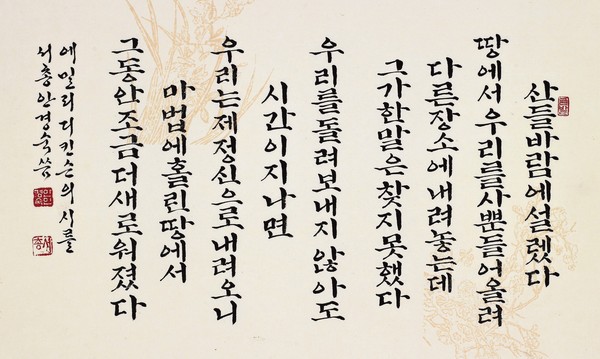 산들바람에 설렜다
땅에서 우리를 사뿐 들어올려
다른 장소에 내려놓는데
그가 한 말은 찾지 못했다
우리를 돌려보내지 않아도
시간이 지나면
우리는 제정신으로 내려오니
마법에 홀린 땅에서
그동안 조금 더 새로워졌다
에밀리 디킨슨의 시를
서총 안경숙 씀